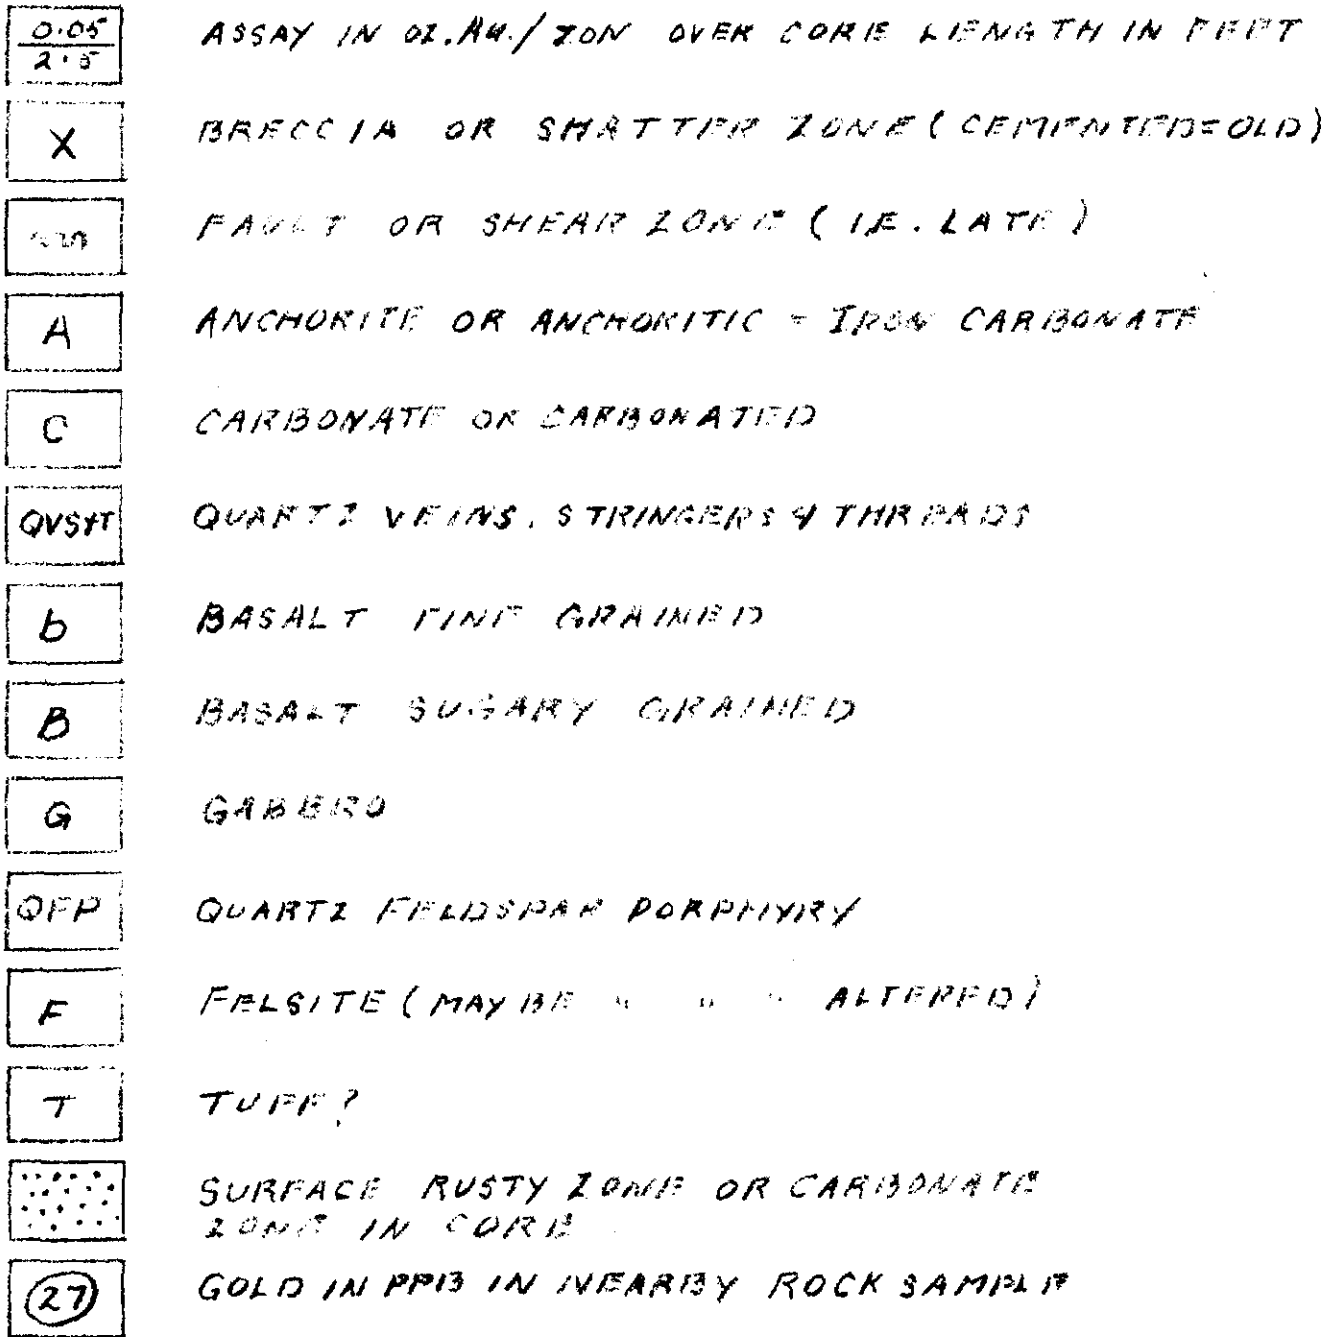 0.05 ASSAY IN OZ.AU./TON OVER CORE LENGTH IN FEET
2.5
X BRECCIA OR SHATTER ZONE (CEMENTED=OLD)
FAULT OR SHEAR ZONE (I.E. LATE)
A ANCHORITE OR ANCHORITIC = IRON CARBONATE
C CARBONATE OR CARBONATED
QVS&T QUARTZ VEINS, STRINGERS & THREADS
b BASALT FINE GRAINED
B BASALT SUGARY GRAINED
G GABBRO
QFP QUARTZ FELDSPAR PORPHYRY
F FELSITE (MAY BE " " " ALTERED)
T TUFF?
SURFACE RUSTY ZONE OR CARBONATE
ZONE IN CORE
27 GOLD IN PPB IN NEARBY ROCK SAMPLE